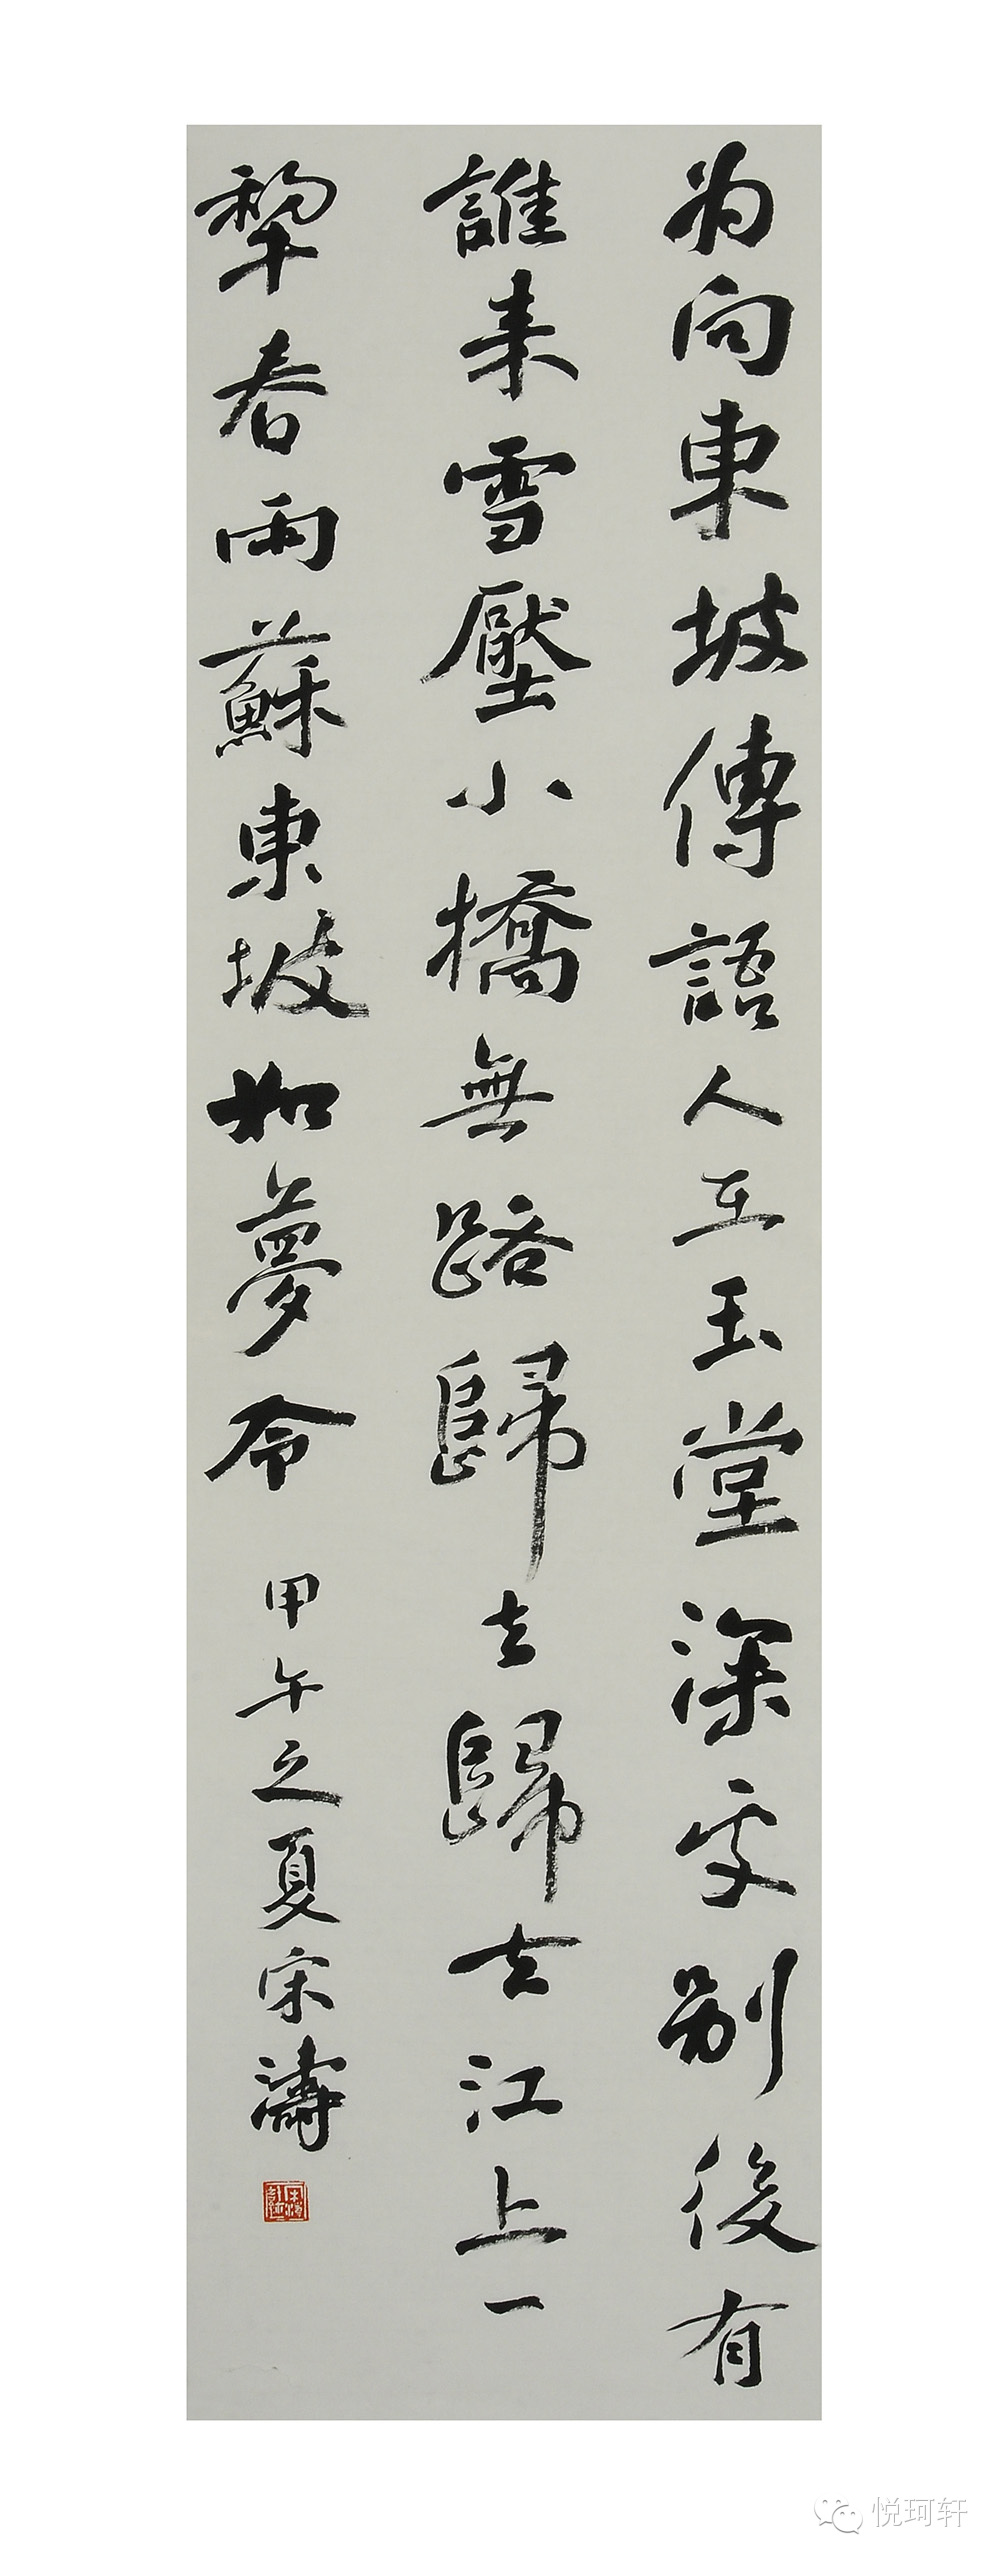 为向東坡傳語人在玉堂深处别後有
誰来雪壓小橋無路歸去歸去江上一
犂春雨蘇東坡如夢令
甲午之夏宋濤
悦珂轩